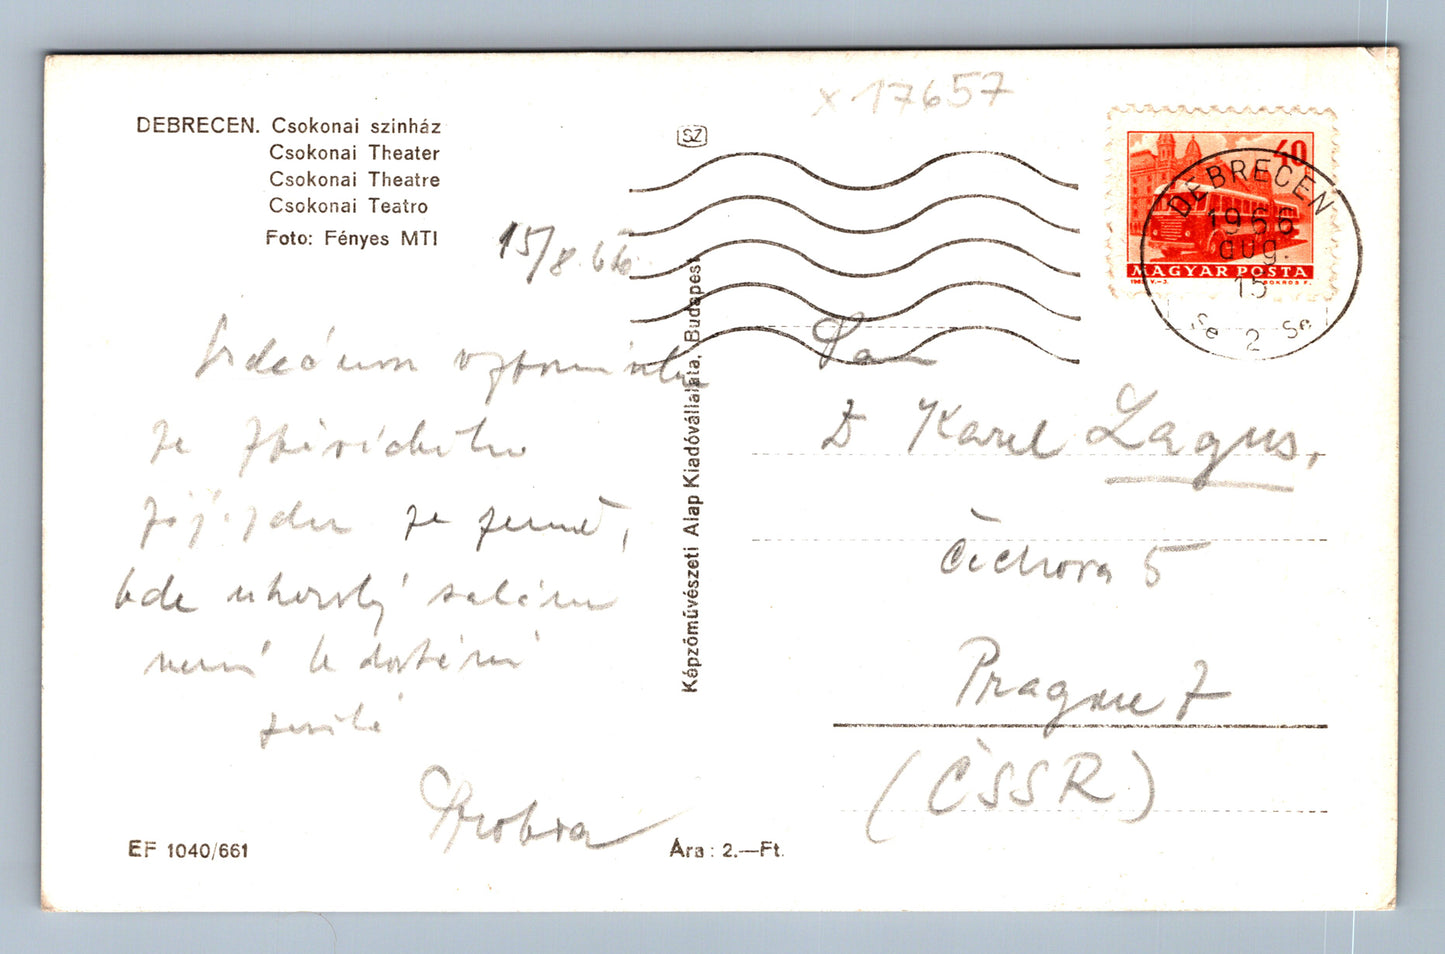 DEBRECEN. Csokonai szinház
Csokonai Theater
Csokonai Theatre
Csokonai Teatro
Foto: Fényes MTI
SZ
x 17657
40
MAGYAR POSTA
DEBRECEN
1966
aug.
15
2
15/8. 66
Srdečnou vzpomínku
ze
ze země,
kde uherský salám
není k dostání
Képzőművészeti Alap Kiadóvállalata, Budapest
Pan
D Karel Lagus,
Čichova 5
Prague 7
(ČSSR)
EF 1040/661
Ára: 2.—Ft.